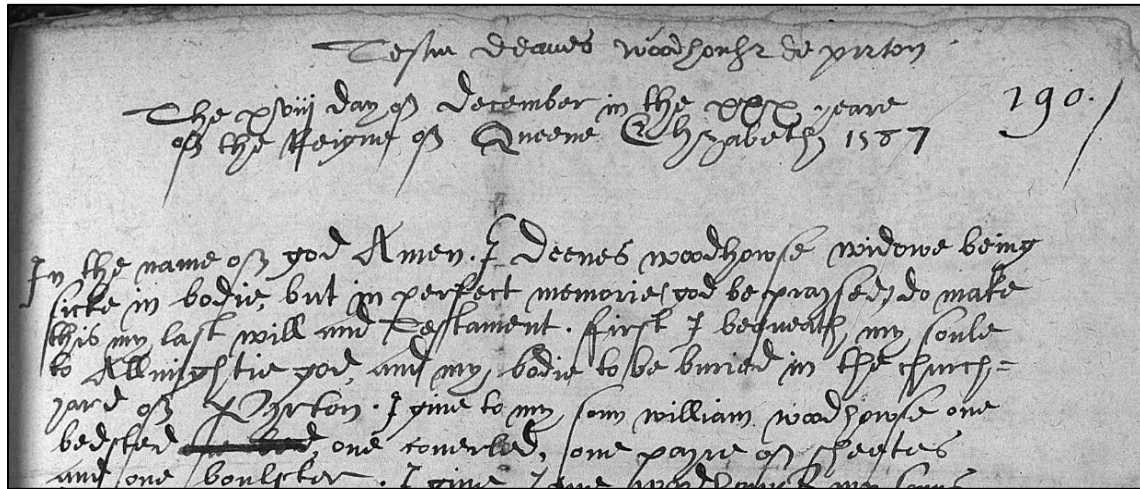 Testm Deaves woodhouse de pirton
The xviij day of December in the xxx yeare
of the Reigne of Queene Elyzabeth 1587
190.
In the name of god Amen. I Deenes woodhowse widowe being
sicke in bodie, but in perfect memorie (god be praysed) do make
this my last will and Testament. first I bequeath my soule
to Allmightie god, and my bodie to be buried in the church=
yard of Pyrton. I give to my sonn william woodhowse one
bedsted one coverled, one payre of sheetes
and one boulster. I give my sonns